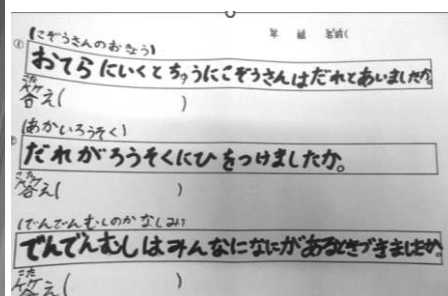 年 組 名前(
① (こぞうさんのおきょう)
おてらにいくとちゅうにこぞうさんはだれとあいましたか。
こた
答え( )
(あかいろうそく)
だれがろうそくにひをつけましたか。
こた
答え( )
(でんでんむしのかなしみ)
でんでんむしはみんなになにがあるときづきましたか。
こた
答え( )